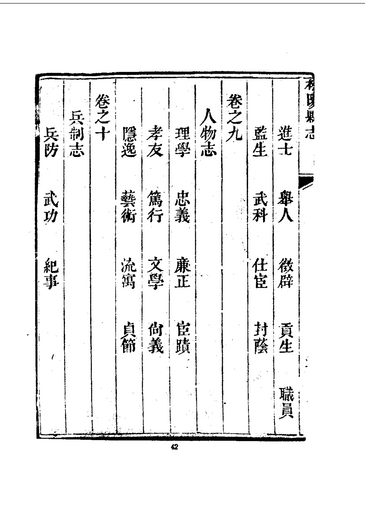 陽縣志
進士 舉人 徵辟 貢生 職員
監生 武科 仕宦 封蔭
卷之九
人物志
理學 忠義 廉正 宦蹟
孝友 篤行 文學 尚義
隱逸 藝術 流寓 貞節
卷之十
兵制志
兵防 武功 紀事
42